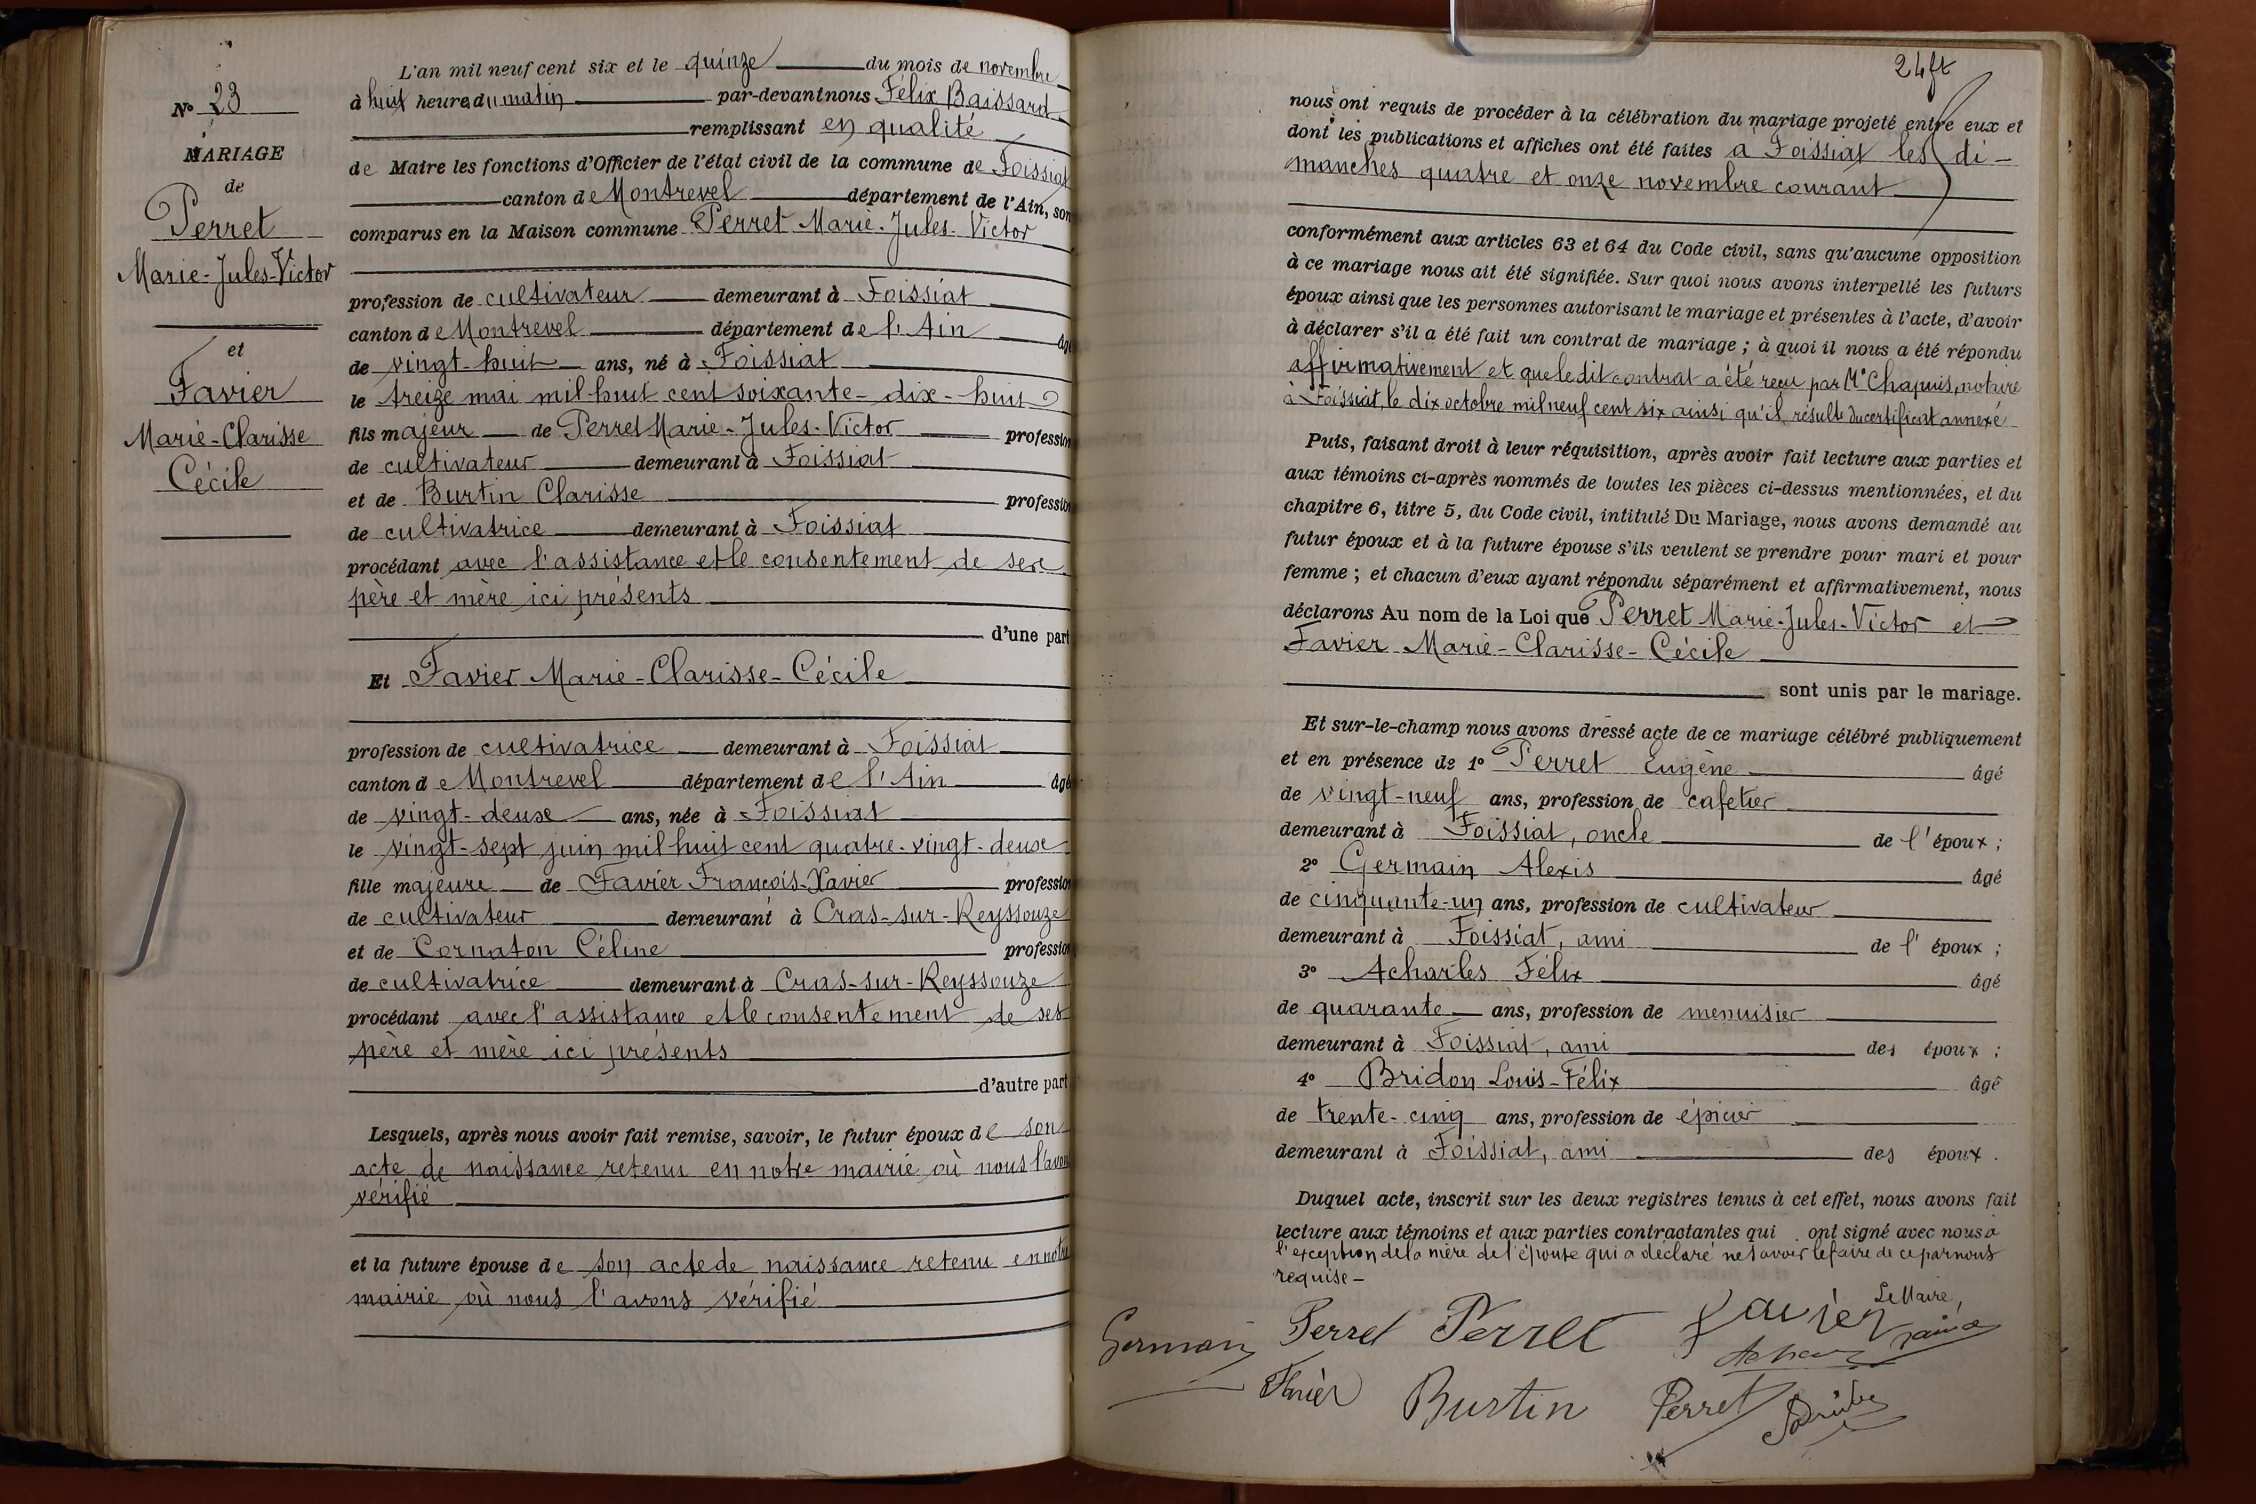 N° 23
MARIAGE
de
Perret
Marie-Jules-Victor
et
Favier
Marie-Clarisse
Cécile
L'an mil neuf cent six et le quinze du mois de novembre
à huit heures du matin par-devant nous Félix Baissard
remplissant en qualité
de Maire les fonctions d'Officier de l'état civil de la commune de Foissiat
canton de Montrevel département de l'Ain, son
comparus en la Maison commune Perret Marie-Jules-Victor
profession de cultivateur demeurant à Foissiat
canton de Montrevel département de l'Ain âgé
de vingt-huit ans, né à Foissiat
le treize mai mil huit cent soixante-dix-huit
fils majeur de Perret Marie-Jules-Victor profession
de cultivateur demeurant à Foissiat
et de Burtin Clarisse profession
de cultivatrice demeurant à Foissiat
procédant avec l'assistance et le consentement de ses
père et mère ici présents
d'une part
Et Favier Marie-Clarisse-Cécile
profession de cultivatrice demeurant à Foissiat
canton de Montrevel département de l'Ain âgé
de vingt-deux ans, née à Foissiat
le vingt-sept juin mil huit cent quatre-vingt-deux
fille majeure de Favier François-Xavier profession
de cultivateur demeurant à Cras-sur-Reyssouze
et de Cornaton Céline profession
de cultivatrice demeurant à Cras-sur-Reyssouze
procédant avec l'assistance et le consentement de ses
père et mère ici présents
d'autre part
Lesquels, après nous avoir fait remise, savoir, le futur époux de son
acte de naissance retenu en notre mairie où nous l'avons
vérifié
et la future épouse de son acte de naissance retenu en notre
mairie où nous l'avons vérifié
24
nous ont requis de procéder à la célébration du mariage projeté entre eux et
dont les publications et affiches ont été faites à Foissiat les di-
manches quatre et onze novembre courant
conformément aux articles 63 et 64 du Code civil, sans qu'aucune opposition
à ce mariage nous ait été signifiée. Sur quoi nous avons interpellé les futurs
époux ainsi que les personnes autorisant le mariage et présentes à l'acte, d'avoir
à déclarer s'il a été fait un contrat de mariage ; à quoi il nous a été répondu
affirmativement et que ledit contrat a été reçu par Me Chapuis, notaire
à Foissiat, le dix octobre mil neuf cent six ainsi qu'il résulte du certificat annexé
Puis, faisant droit à leur réquisition, après avoir fait lecture aux parties et
aux témoins ci-après nommés de toutes les pièces ci-dessus mentionnées, et du
chapitre 6, titre 5, du Code civil, intitulé Du Mariage, nous avons demandé au
futur époux et à la future épouse s'ils veulent se prendre pour mari et pour
femme ; et chacun d'eux ayant répondu séparément et affirmativement, nous
déclarons Au nom de la Loi que Perret Marie-Jules-Victor et
Favier Marie-Clarisse-Cécile
sont unis par le mariage.
Et sur-le-champ nous avons dressé acte de ce mariage célébré publiquement
et en présence de 1° Perret Eugène âgé
de vingt-neuf ans, profession de cafetier
demeurant à Foissiat, oncle de l'époux ;
2° Germain Alexis âgé
de cinquante-un ans, profession de cultivateur
demeurant à Foissiat, ami de l'époux ;
3° Acharles Félix âgé
de quarante ans, profession de menuisier
demeurant à Foissiat, ami des époux ;
4° Bridon Louis-Félix âgé
de trente-cinq ans, profession de épicier
demeurant à Foissiat, ami des époux.
Duquel acte, inscrit sur les deux registres tenus à cet effet, nous avons fait
lecture aux témoins et aux parties contractantes qui ont signé avec nous à
l'exception de la mère de l'épouse qui a déclaré ne savoir le faire de ce par nous
requise -
Le Maire,
Germain Perret Perret Favier
Burtin Perret